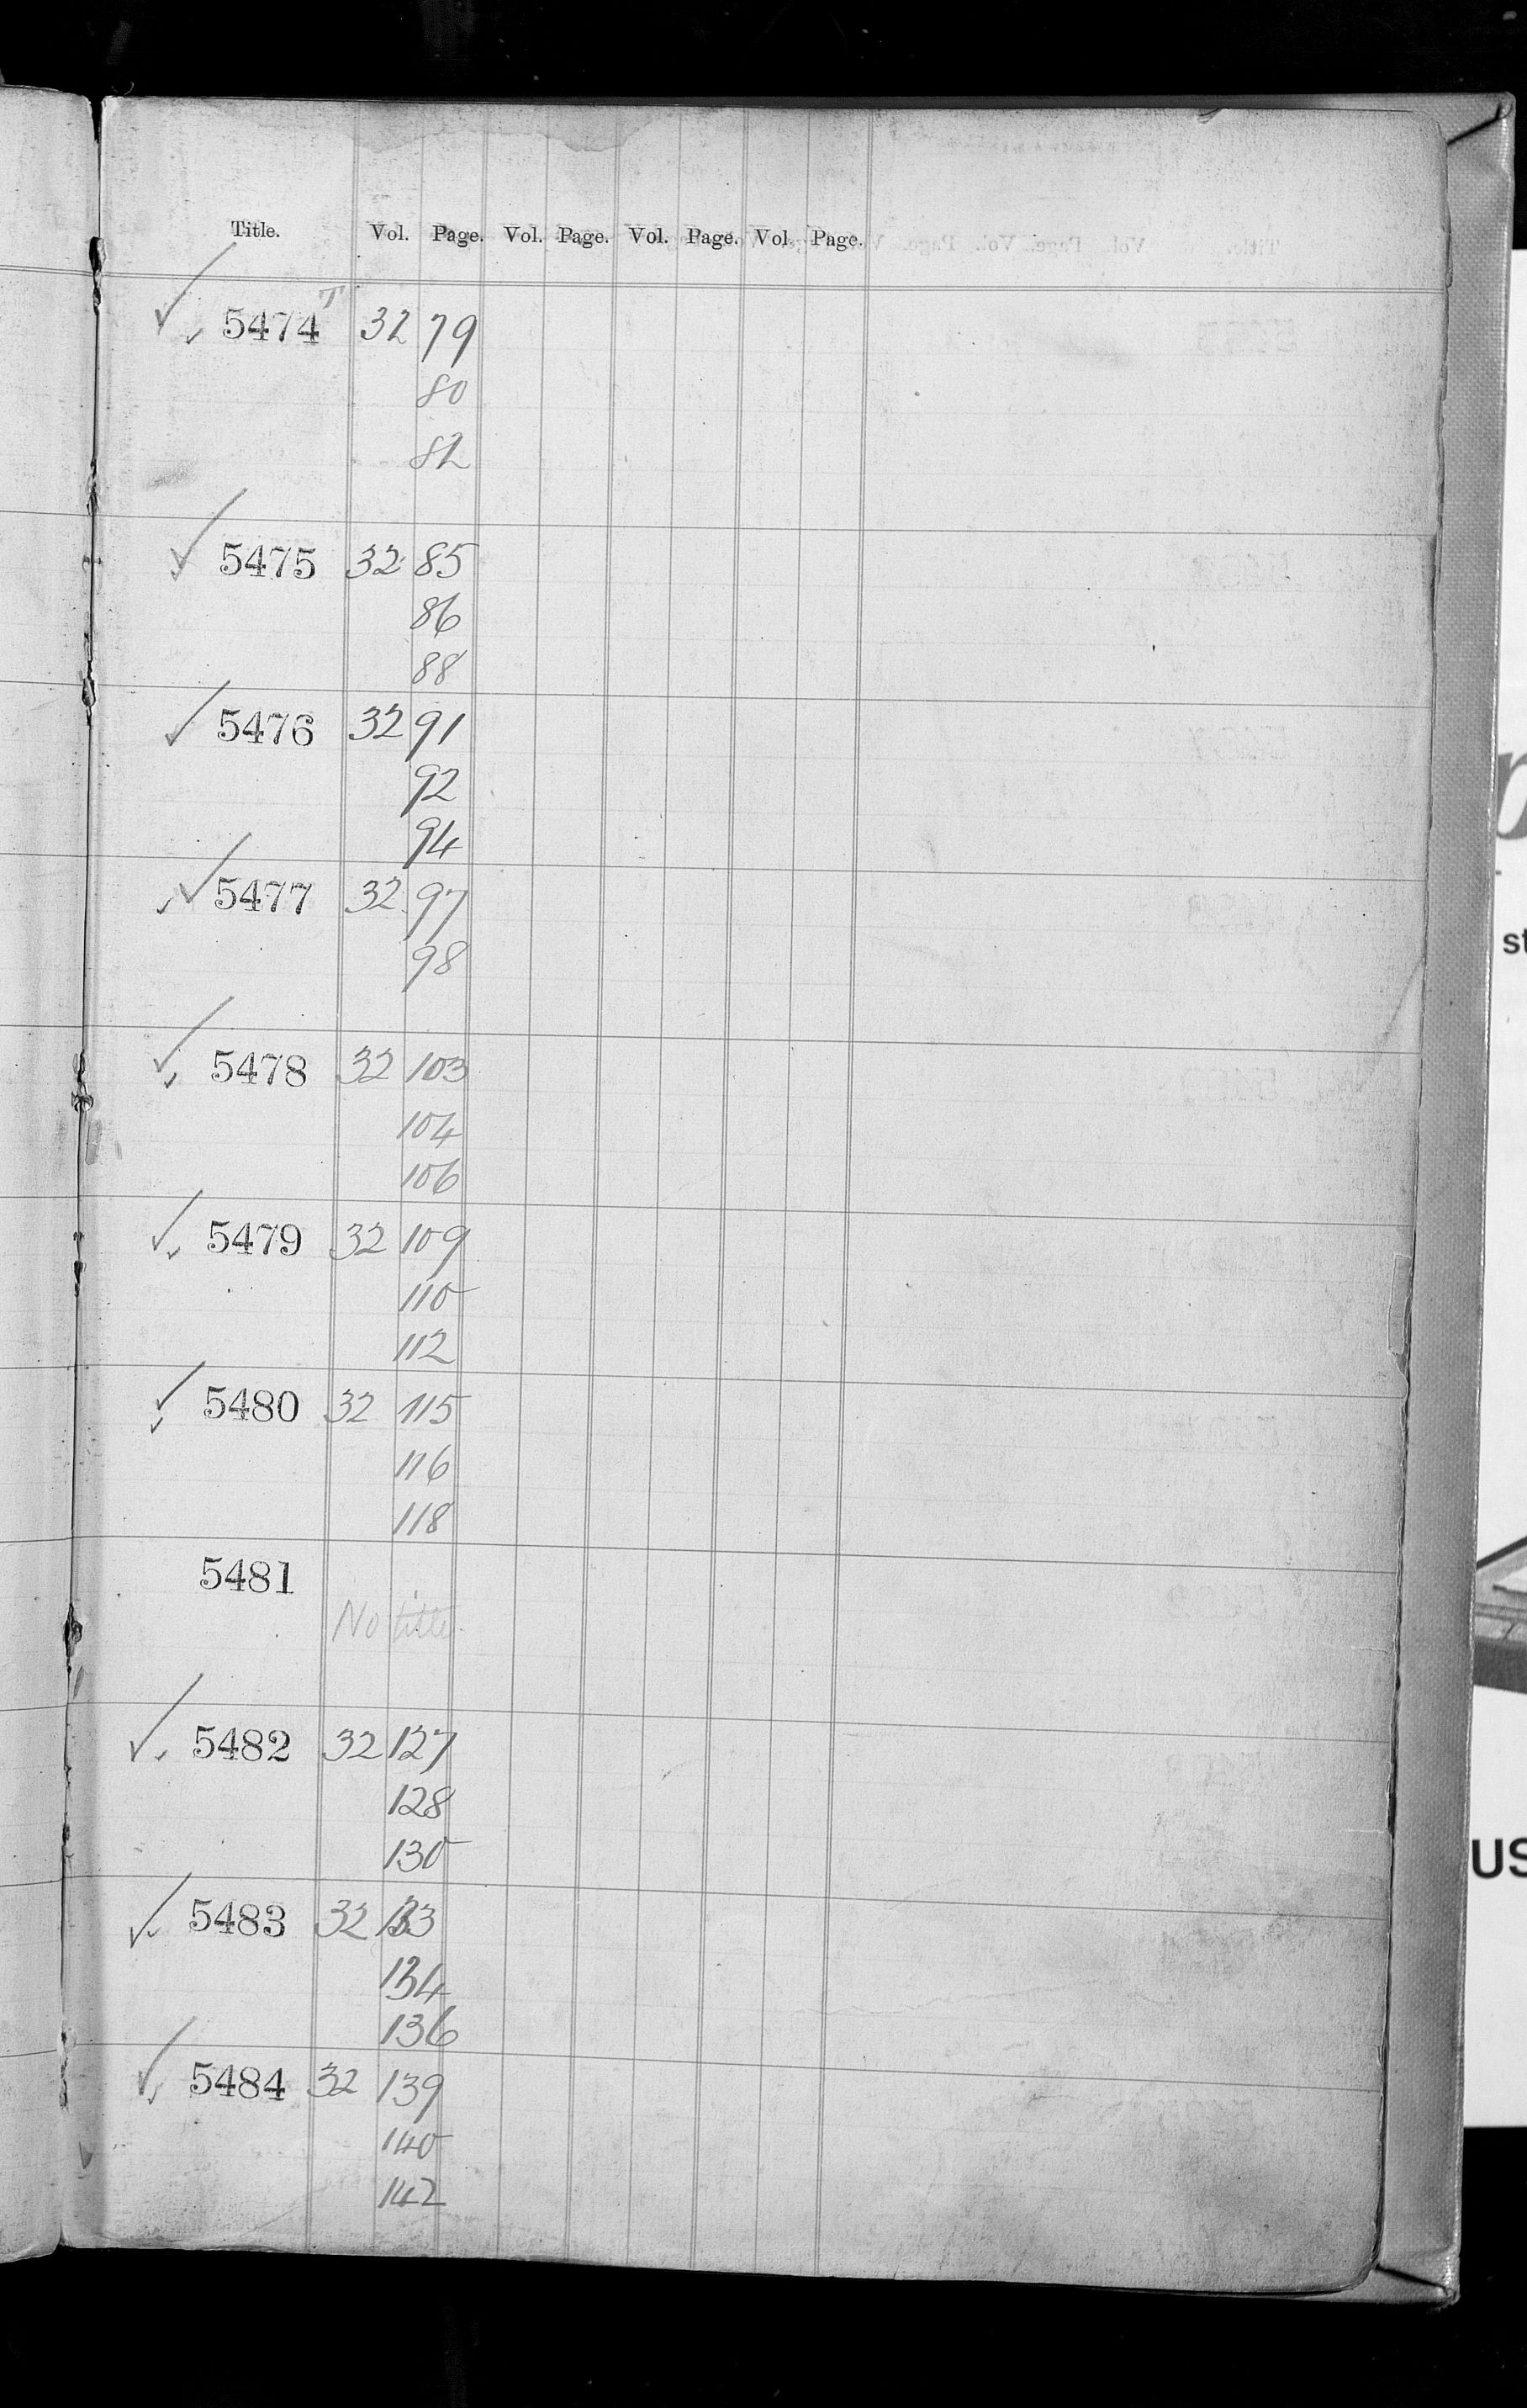 Title. Vol. Page. Vol. Page. Vol. Page. Vol. Page.
✓ ✓ 5474 T 32 79
80
82
✓ ✓ 5475 32 85
86
88
✓ 5476 32 91
92
94
✓ ✓ 5477 32 97
98
✓ ✓ 5478 32 103
104
106
✓ ✓ 5479 32 109
110
112
✓ ✓ 5480 32 115
116
118
5481
No title
✓ ✓ 5482 32 127
128
130
✓ ✓ 5483 32 133
134
136
✓ ✓ 5484 32 139
140
142
st
US